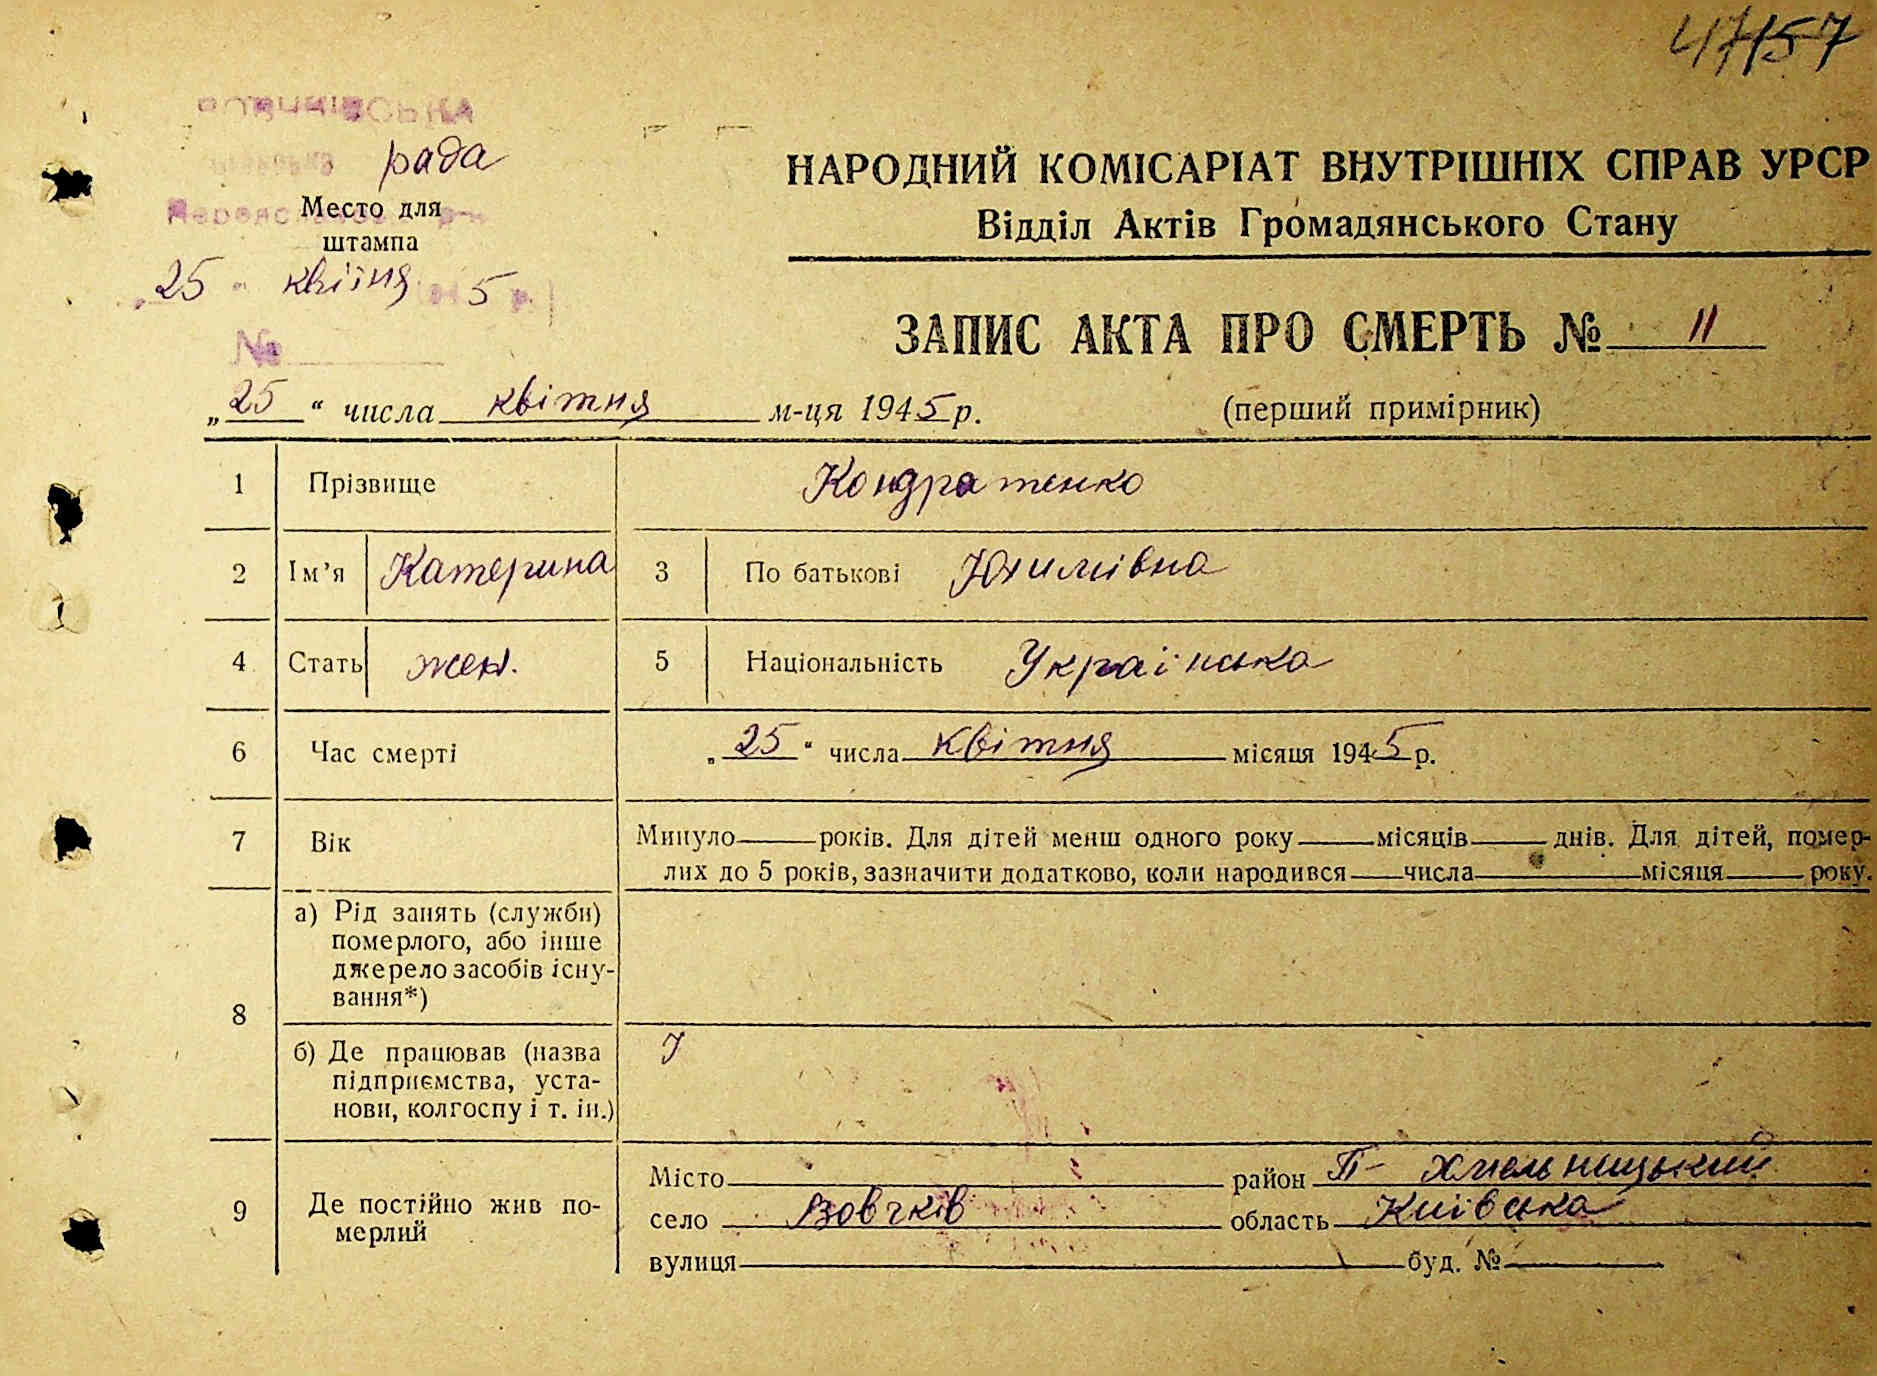 47/57
рада
Место для
штампа
„25" квітня 5 р.
№
НАРОДНИЙ КОМІСАРІАТ ВНУТРІШНІХ СПРАВ УРСР
Відділ Актів Громадянського Стану
ЗАПИС АКТА ПРО СМЕРТЬ № 11
„25" числа квітня м-ця 1945 р. (перший примірник)
1 Прізвище Кондратенко
2 Ім'я Катерина 3 По батькові Юхимівна
4 Стать жен. 5 Національність Українська
6 Час смерті „25" числа квітня місяця 1945 р.
7 Вік Минуло років. Для дітей менш одного року місяців днів. Для дітей, помер-
лих до 5 років, зазначити додатково, коли народився числа місяця року.
8 а) Рід занять (служби)
померлого, або інше
джерело засобів існу-
вання*)
б) Де працював (назва
підприємства, уста-
нови, колгоспу і т. ін.)
9 Де постійно жив по-
мерлий
Місто район П-Хмельницький
село Вовчків область Київська
вулиця буд. №